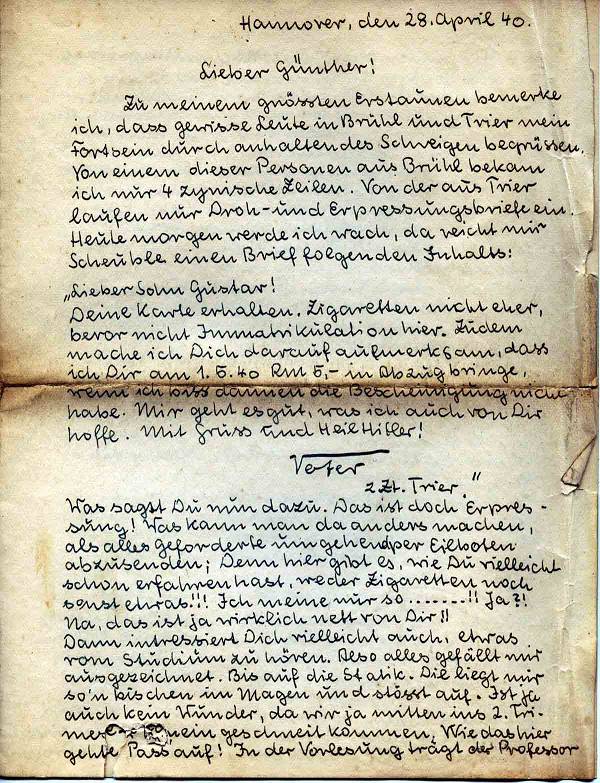 Hannover, den 28. April 40.
Lieber Günther!
Zu meinem grössten Erstaunen bemerke
ich, dass gewisse Leute in Brühl und Trier mein
Fortsein durch anhaltendes Schweigen begrüssen.
Von einem dieser Personen aus Brühl bekam
ich nur 4 zynische Zeilen. Von der aus Trier
laufen nur Droh- und Erpressungsbriefe ein.
Heute morgen werde ich wach, da reicht mir
Scheuble einen Brief folgenden Inhalts:
„Lieber Sohn Gustav!
Deine Karte erhalten. Zigaretten nicht eher,
bevor nicht Immatrikulation hier. Zudem
mache ich Dich darauf aufmerksam, dass
ich Dir am 1.5.40 RM 5,- in Abzug bringe,
wenn ich biss dannen die Bescheinigung nicht
habe. Mir geht es gut, was ich auch von Dir
hoffe. Mit Gruss und Heil Hitler!
Vater
z. Zt. Trier."
Was sagst Du nun dazu. Das ist doch Erpres-
sung! Was kann man da anders machen,
als alles Geforderte umgehend per Eilboten
abzusenden; Denn hier gibt es, wie Du vielleicht
schon erfahren hast, weder Zigaretten noch
sonst etwas!!! Ich meine nur so .......!! Ja?!
Na, das ist ja wirklich nett von Dir!!
Dann intressiert Dich vielleicht auch, etwas
vom Studium zu hören. Also alles gefällt mir
ausgezeichnet. Bis auf die Statik. Die liegt mir
so'n bischen im Magen und stösst auf. Ist ja
auch kein Wunder, da wir ja mitten ins 2. Tri-
mein geschneit kommen. Wie das hier
geht? Pass auf! In der Vorlesung trägt der Professor